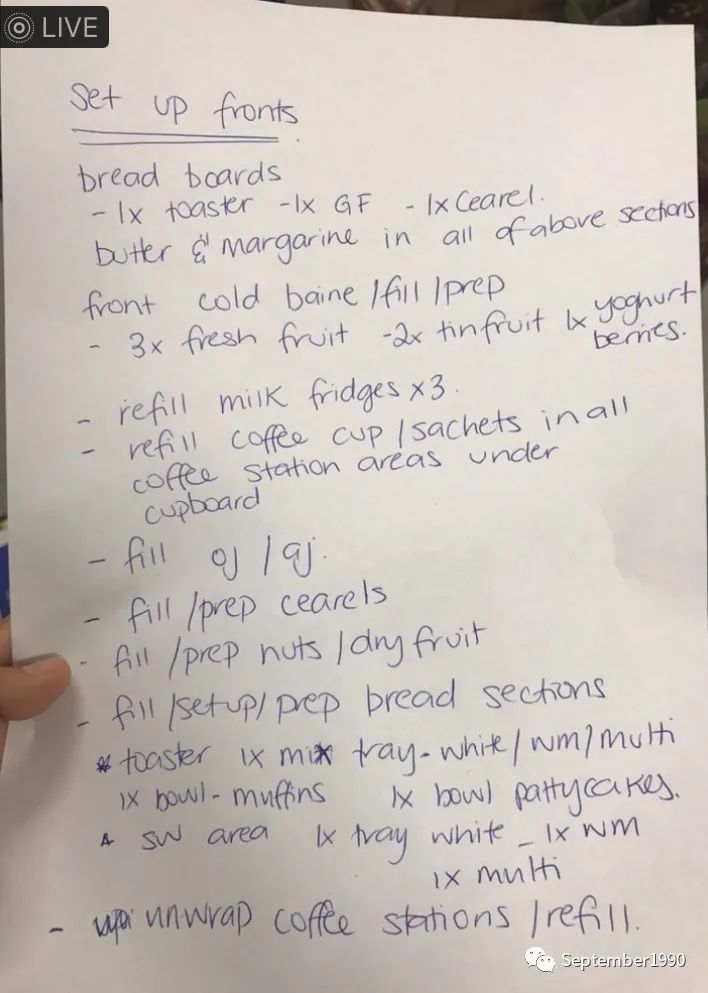 LIVE
Set up fronts
bread boards
- 1x toaster - 1x GF - 1x Cearel.
butter & margarine in all of above sections
front cold baine / fill / prep
- 3x fresh fruit - 2x tin fruit 1x yoghurt
berries.
- refill milk fridges x3.
- refill coffee cup / sachets in all
coffee station areas under
cupboard
- fill oj / aj.
- fill / prep cearels
- fill / prep nuts / dry fruit
- fill / setup / prep bread sections
* toaster 1x mix tray - white / wm / multi
1x bowl - muffins 1x bowl pattycakes.
* SW area 1x tray white - 1x wm
1x multi
- unwrap coffee stations / refill.
September1990